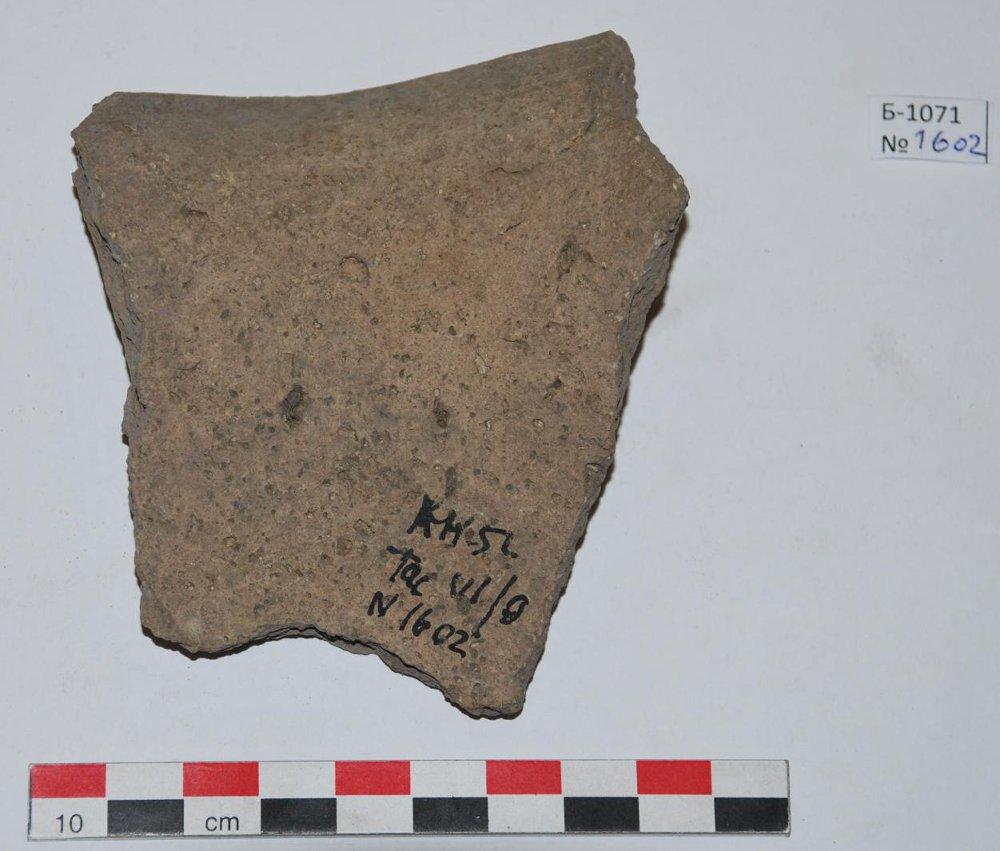 Б-1071
№ 1602
КН-52
Рас VI/8
N 1602
10 cm